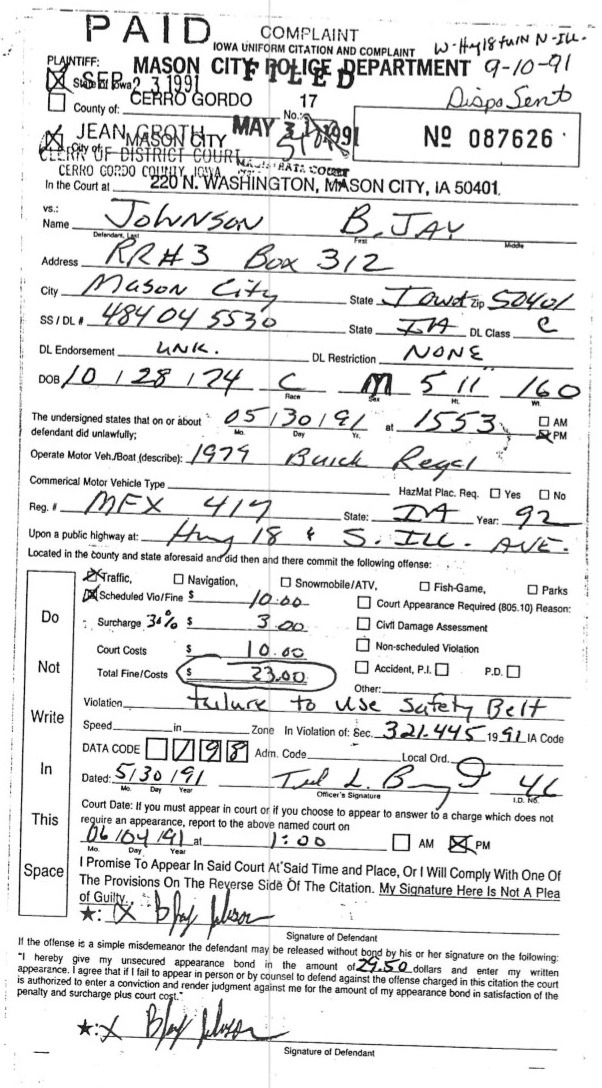 PAID
COMPLAINT
IOWA UNIFORM CITATION AND COMPLAINT
W-Hy 18 turn N-ILL.
PLAINTIFF:
MASON CITY POLICE DEPARTMENT
9-10-91
State of Iowa
SEP 23 1991
FILED
Dispo Sent
County of: CERRO GORDO 17
No.:
MAY 31 1991
Nº 087626
JEAN GROTH
City of MASON CITY
CLERK OF DISTRICT COURT
MAGISTRATE COURT
CERRO GORDO COUNTY, IOWA
In the Court at 220 N. WASHINGTON, MASON CITY, IA 50401
vs.:
Name JOHNSON B. JAY
Defendant, Last First Middle
Address RR#3 Box 312
City MASON City State Iowa Zip 50401
SS / DL # 484 04 5530 State IA DL Class C
DL Endorsement UNK. DL Restriction NONE
DOB 10 / 28 / 74 C M 5 11 160
Race Sex Ht. Wt.
The undersigned states that on or about 05/30/91 at 1553 AM
defendant did unlawfully; Mo. Day Yr. PM
Operate Motor Veh./Boat (describe): 1979 Buick Regal
Commerical Motor Vehicle Type HazMat Plac. Req. Yes No
Reg. # MFX 417 State: IA Year: 92
Upon a public highway at: Hwy 18 & S. ILL. AVE.
Located in the county and state aforesaid and did then and there commit the following offense:
Traffic, Navigation, Snowmobile/ATV, Fish-Game, Parks
Scheduled Vio/Fine $ 10.00 Court Appearance Required (805.10) Reason:
Surcharge 30% $ 3.00 Civil Damage Assessment
Court Costs $ 10.00 Non-scheduled Violation
Total Fine/Costs $ 23.00 Accident, P.I. P.D.
Other:
Violation failure to Use Safety Belt
Speed in Zone In Violation of: Sec. 321.445 1991 IA Code
DATA CODE 198 Adm. Code Local Ord.
Dated: 5/30/91 46
Mo. Day Year Officer's Signature I.D. No.
Court Date: If you must appear in court or if you choose to appear to answer to a charge which does not
require an appearance, report to the above named court on
06/04/91 at 1:00 AM PM
Mo. Day Year
I Promise To Appear In Said Court At Said Time and Place, Or I Will Comply With One Of
The Provisions On The Reverse Side Of The Citation. My Signature Here Is Not A Plea
of Guilty.
Do
Not
Write
In
This
Space
★: X B Jay Johnson
Signature of Defendant
If the offense is a simple misdemeanor the defendant may be released without bond by his or her signature on the following:
"I hereby give my unsecured appearance bond in the amount of 29.50 dollars and enter my written
appearance. I agree that if I fail to appear in person or by counsel to defend against the offense charged in this citation the court
is authorized to enter a conviction and render judgment against me for the amount of my appearance bond in satisfaction of the
penalty and surcharge plus court cost."
★: X B Jay Johnson
Signature of Defendant